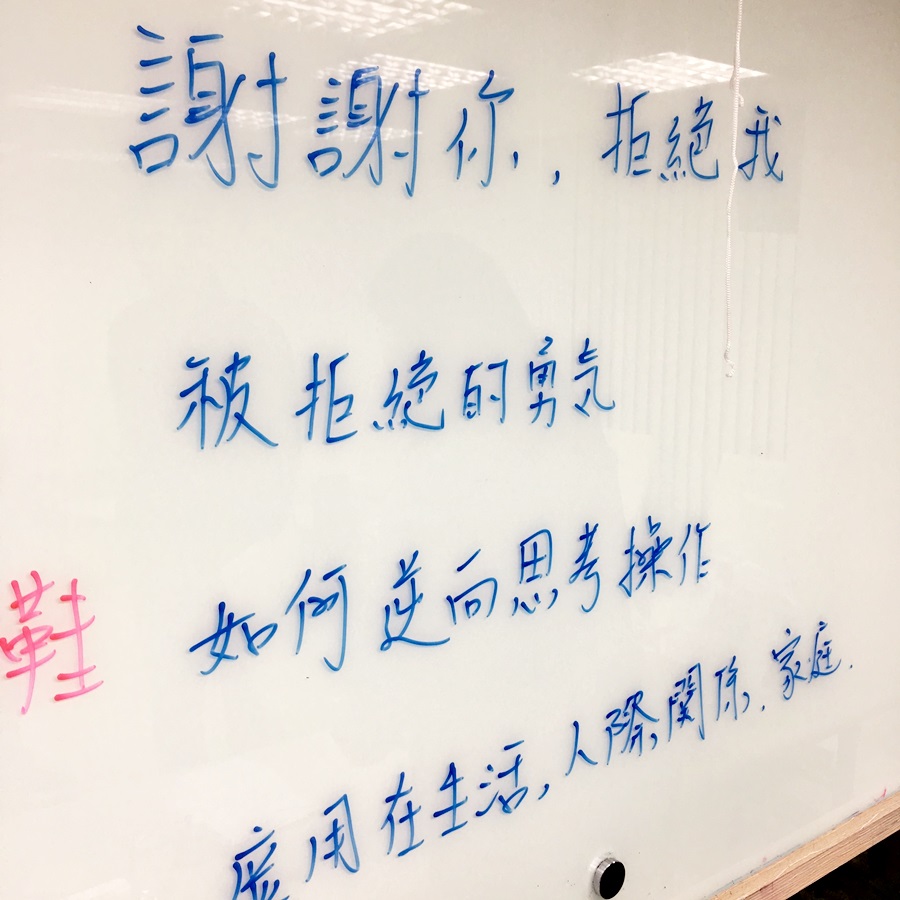 謝謝你，拒絕我
被拒絕的勇気
如何逆向思考操作
鞋
應用在生活，人際關係、家庭.